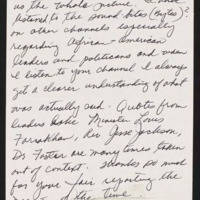 as the whole picture. I have
listened to the sound bites (bytes)?
on other channels especially
regarding African-American
leaders and politicians and when
I listen to your channel I always
get a clearer understanding of what
was actually said. Quotes from
leaders like Minister Louis
Farrakhan, Rev Jesse Jackson,
Dr Foster are many times taken
out of context. Thanks so much
for your fair reporting the
of the time.